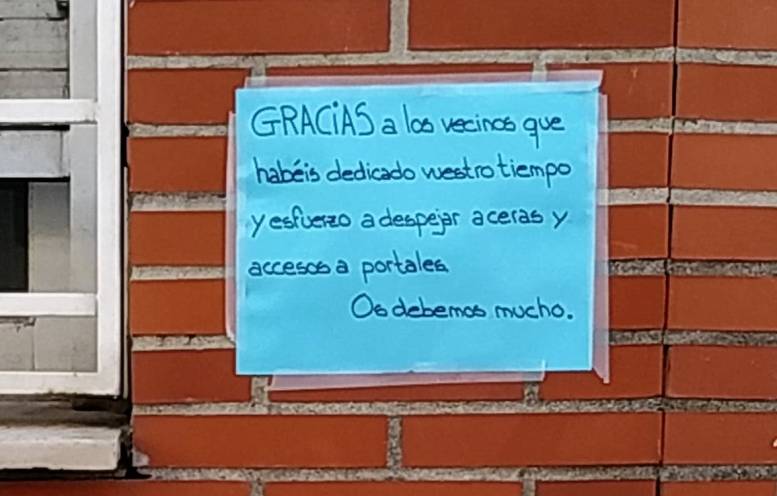 GRACIAS a los vecinos que
habéis dedicado vuestro tiempo
y esfuerzo a despejar aceras y
accesos a portales.
Os debemos mucho.